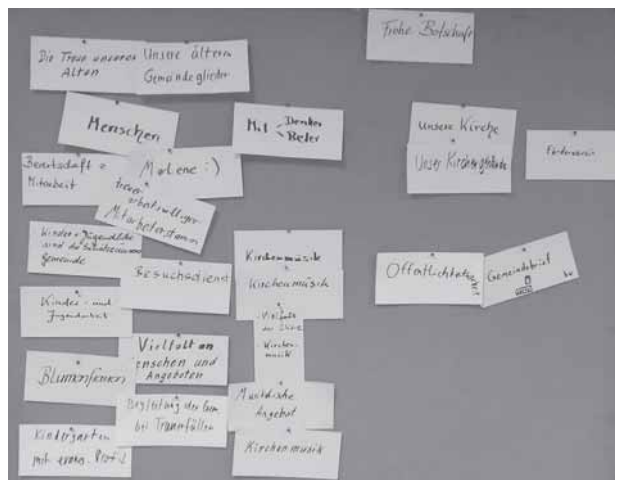 Frohe Botschaft
Die Treue unserer
Alten
Unsere ältern
Gemeindeglieder
Menschen
Mit Denker
Beter
unsere Kirche
Unser
Förderverein
Bereitschaft z
Mitarbeit
Marlene :)
treuer
arbeitswilliger
Mitarbeiterstamm
Kinder + Jugendliche
sind die
Gemeinde
Besuchsdienst
Kirchenmusik
Kirchenmusik
Öffentlichkeit
Gemeindebrief
Kinder- und
Jugendarbeit
- Vielfalt
der Chöre
- Kirchen-
musik
Vielfalt an
Menschen und
Angeboten
Blumenfrauen
Musikalische
Angebot
Begleitung der Gem
bei Trauerfällen
Kindergarten
mit
Kirchenmusik